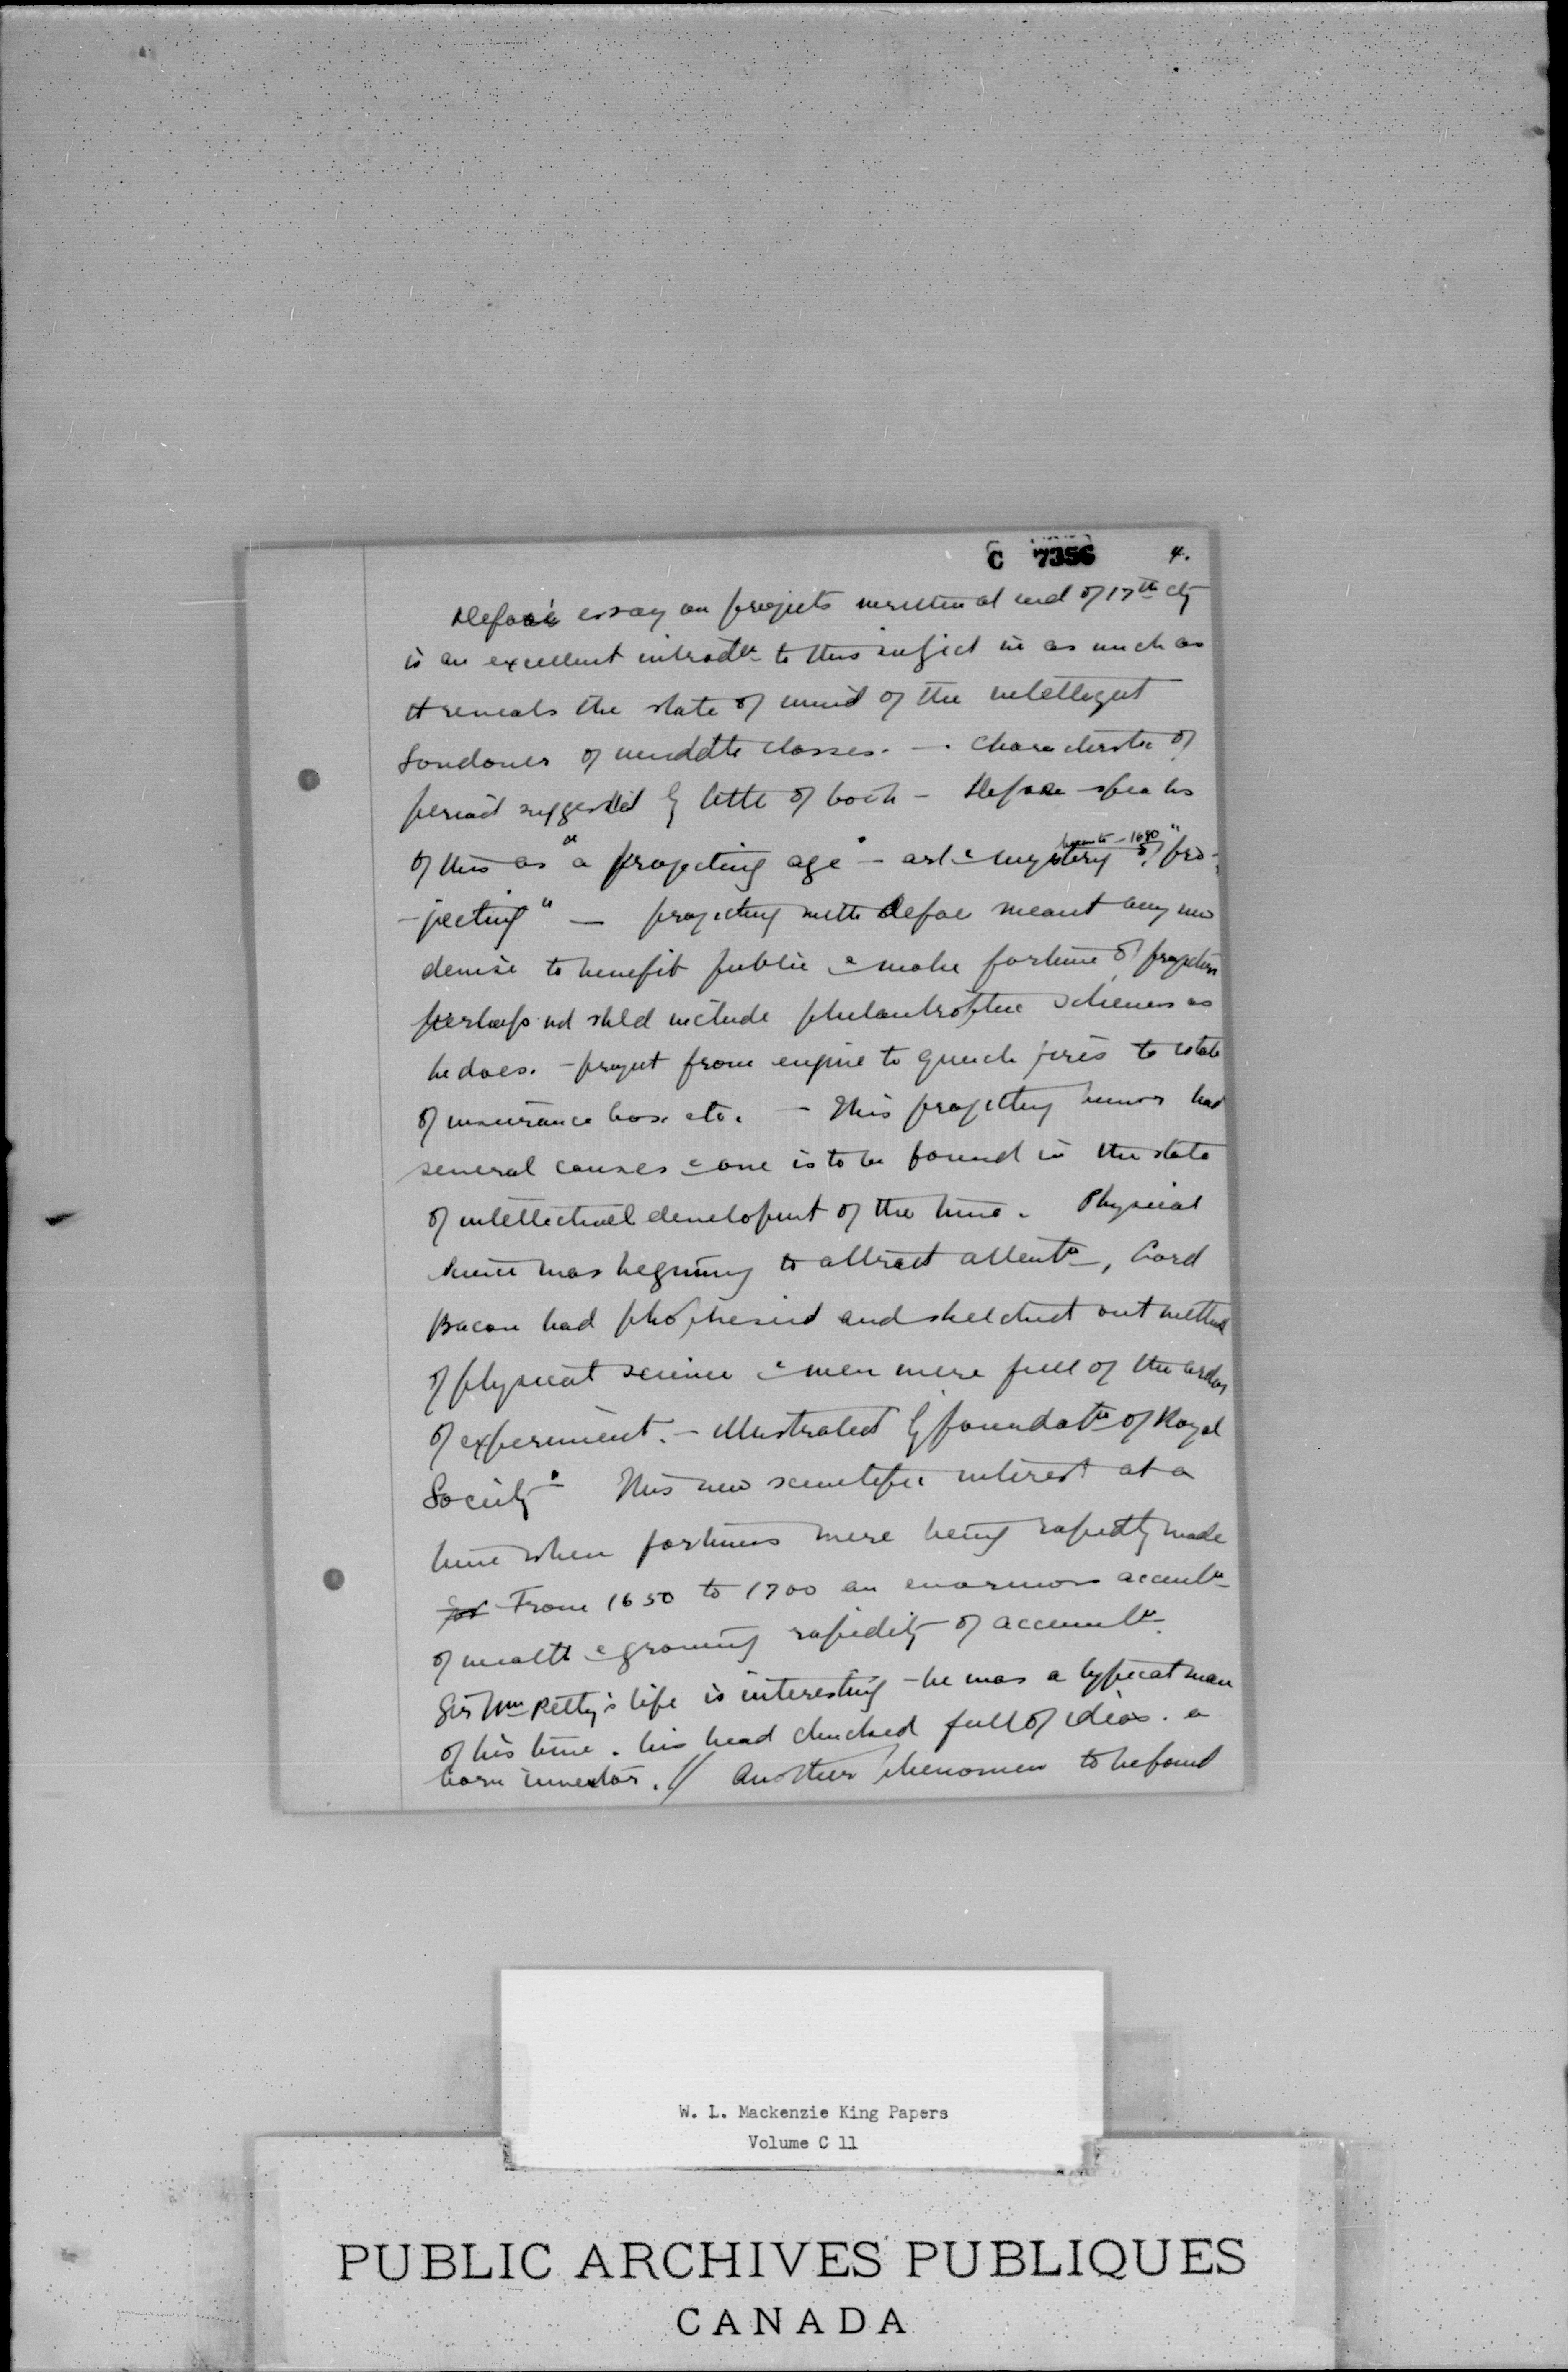 C 7356 4.
Defoe's essay on projects written at end of 17th cty
is an excellent introdtn to this subject in as much as
it reveals the state of mind of the intelligent
Londoner of middle classes. — Characteristic of
period suggested by title of book — Defoe speaks
of this as "a projecting age" — art & mystery of "pro-
1680
-jecting" — projecting with Defoe meant any new
devise to benefit public & make fortune of projectors
perhaps not shld include philantrophic schemes as
he does. - project from engine to quench fires to estab
of insurance cos. etc. — This projecting humor had
several causes & one is to be found in the state
of intellectual developmt of the time. Physical
science was beginning to attract attentn, Lord
Bacon had phophesied and sketched out method
of physical science & men were full of the ardor
of experiment. — illustrated by foundatn of Royal
Society. This new scientific interest at a
time when fortunes were being rapidly made
for From 1650 to 1700 an enormous accumltn
of wealth & growing rapidity of accumltn.
Sir Wm Petty's life is interesting - he was a typical man
of his time. his head chucked full of ideas. a
born inventor. // Another phenomen to be found
W. L. Mackenzie King Papers
Volume C 11
PUBLIC ARCHIVES PUBLIQUES
CANADA